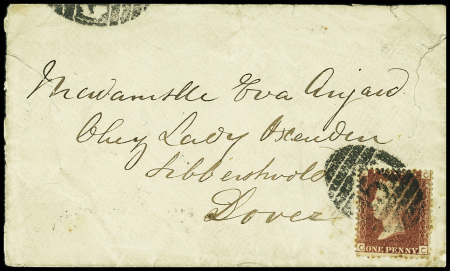 Mevdamslle Eva Anjard
Chez Lady Oxenden
Sibbertswold
Dover
C C
ONE PENNY